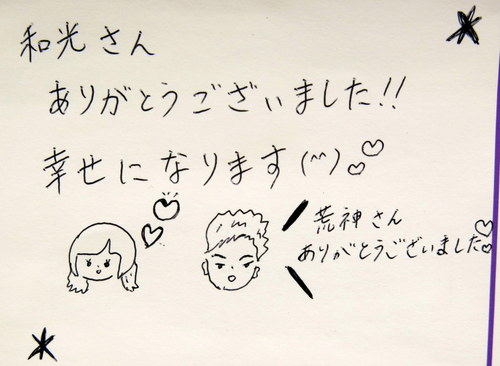 和光さん
ありがとうございました!!
幸せになります(^^)♡♡
荒神さん
ありがとうございました♡♡